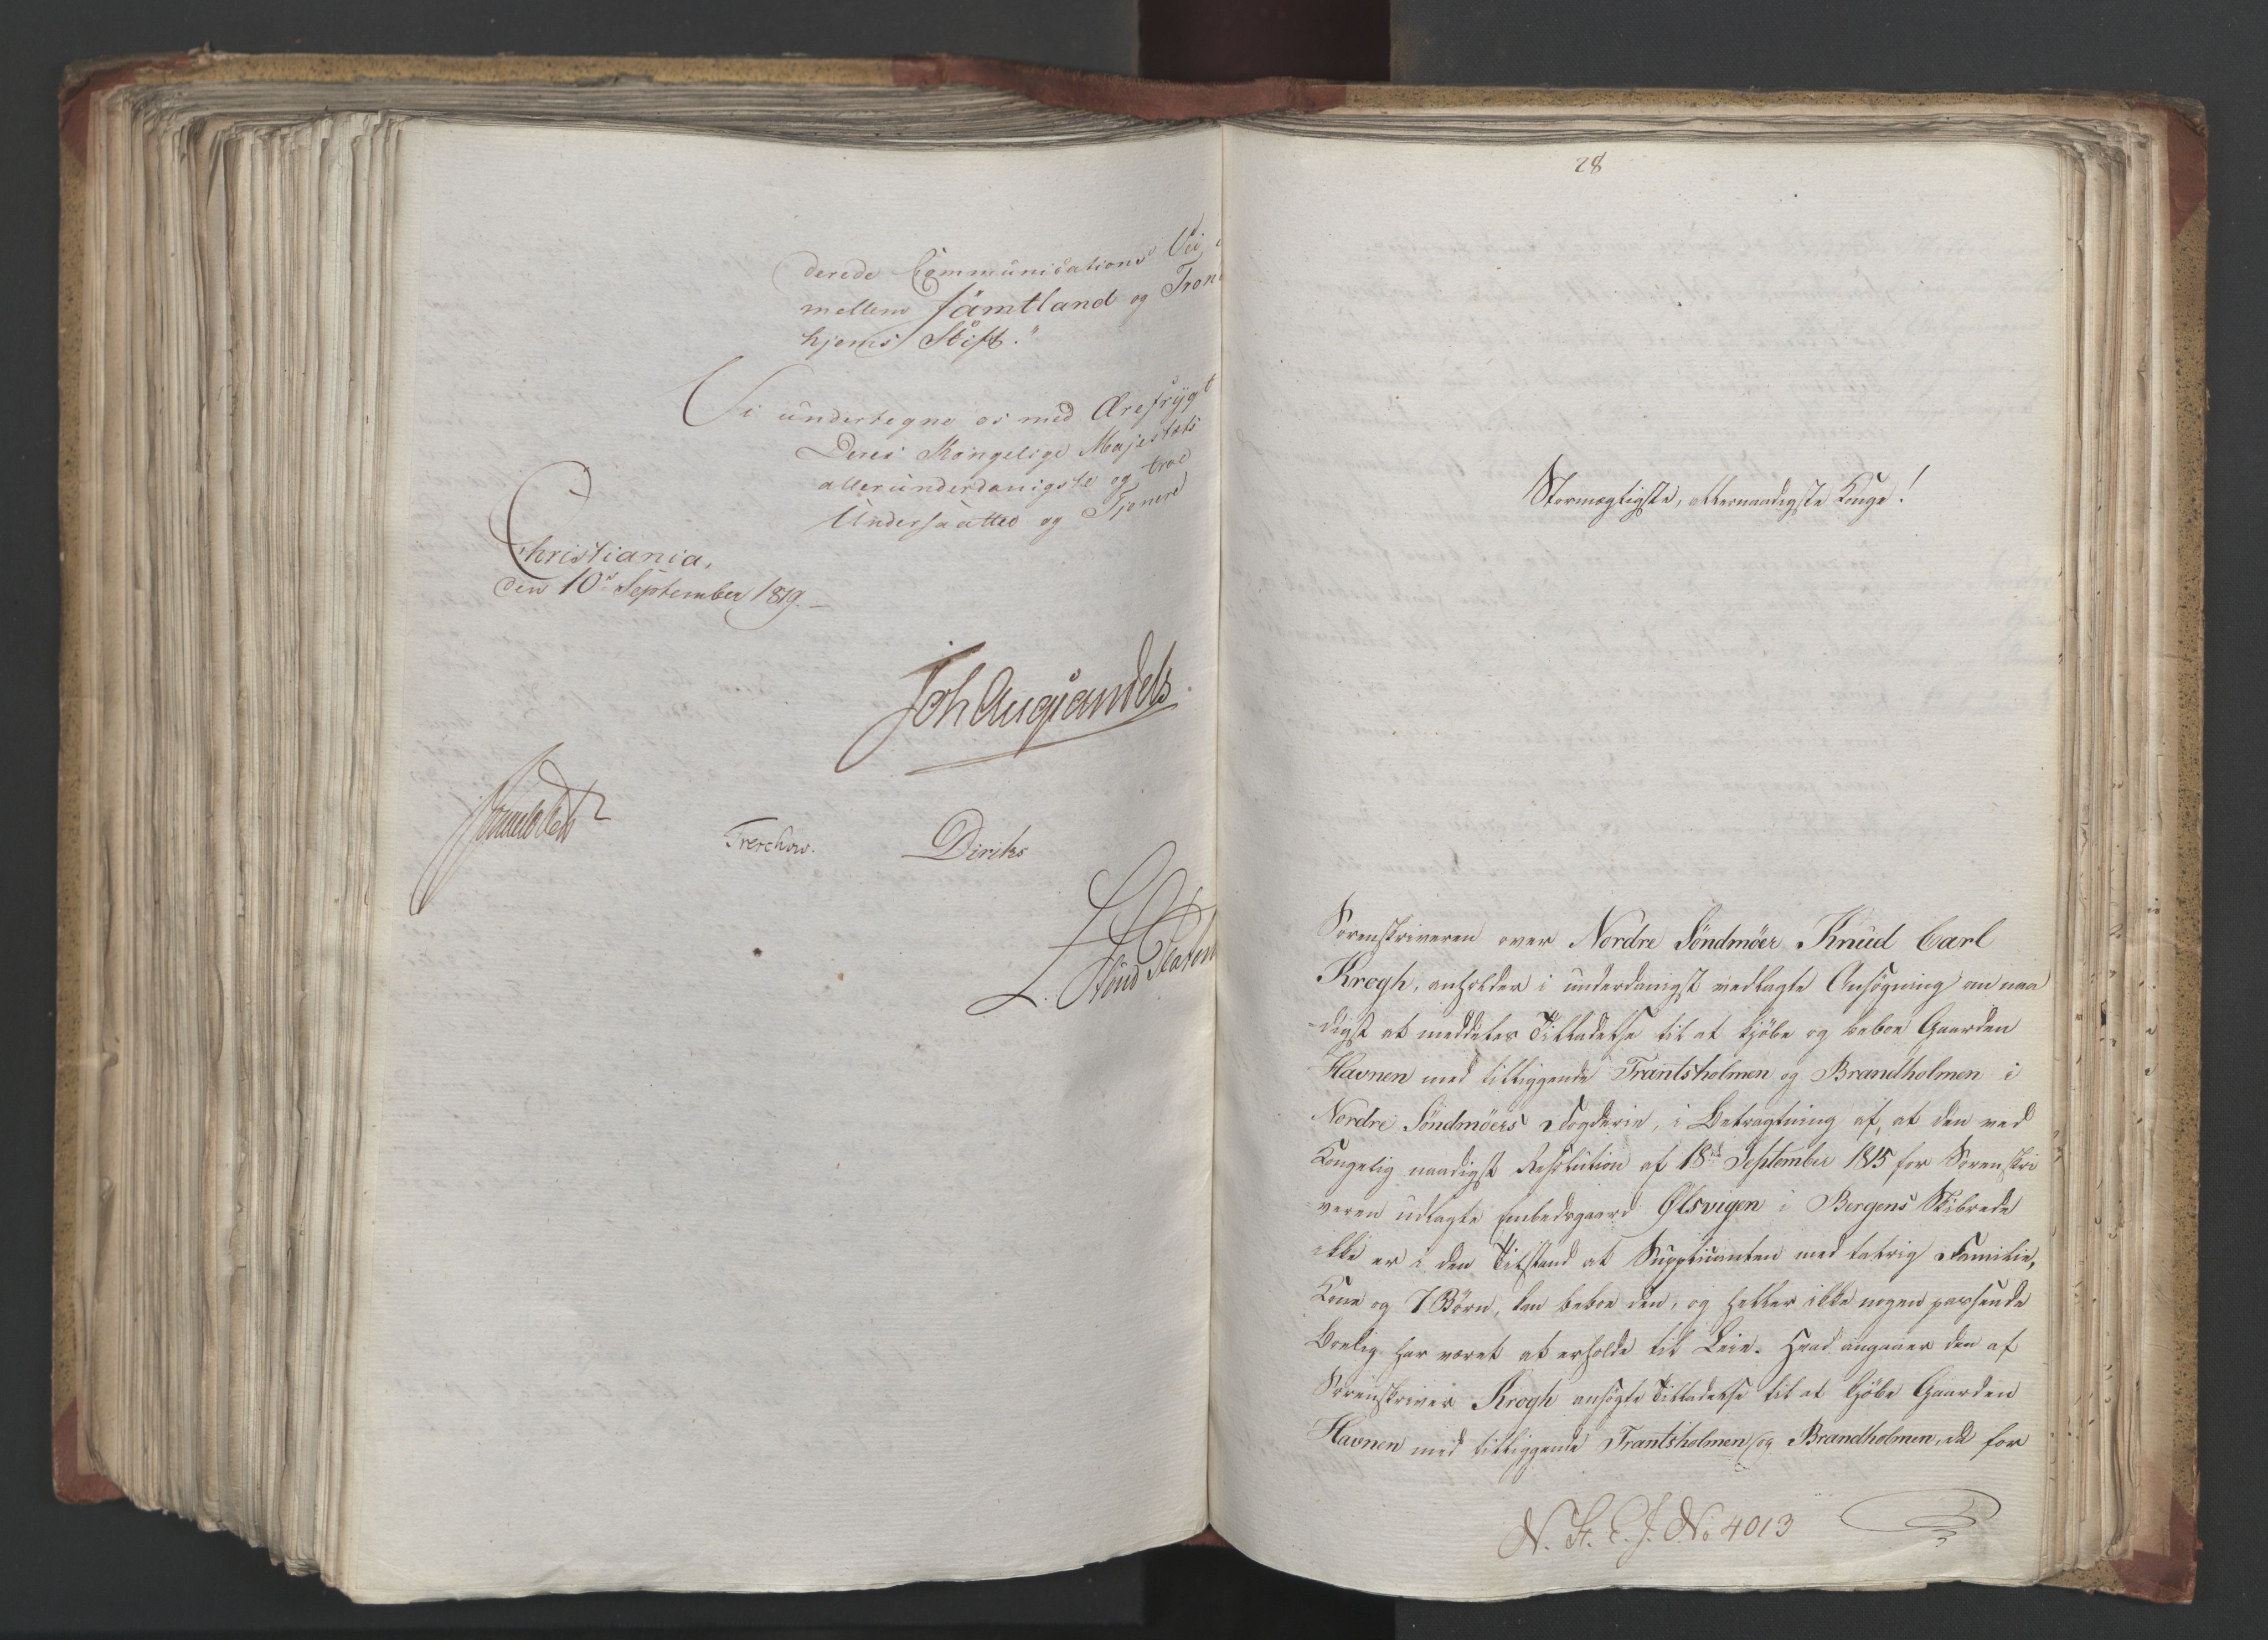 derede Communications Vei
mellem Jämtland og Trond
hjems Stift."
Vi undertegne os med Ærefrygt
Deres Kongelige Majestæts
allerunderdanigste og troe
Undersaatter og Tjenere
Christiania,
den 10de September 1819.
Joh Aug Sandels
Sommerhielm
Treschow.
Diriks
L. Stoud Platou
28
Stormægtigste, allernaadigste Konge!
Sorenskriveren over Nordre Söndmöer Knud Carl
Krogh, anholder i underdanigst vedlagte Ansögning om naa
digst at meddeles Tilladelse til at kjöbe og beboe Gaarden
Havnen med tilliggende Trantsholmen og Brandholmen i
Nordre Söndmöers Fogderie, i Betragtning af, at den ved
Kongelig naadigst Resolution af 18de September 1815 for Sorenskri
veren udlagte Embedsgaard Ølsvigen i Borgens Skibrede
ikke er i den Tilstand at Supplicanten med talrig Familie,
Kone og 7 Börn, kan beboe den, og heller ikke nogen passende
Boelig har været at erholde til Leie. Hvad angaaer den af
Sorenskriver Krogh ansögte Tilladelse til at kjöbe Gaarden
Havnen med tilliggende Trantsholmen og Brandholmen, da for
N. St. E. J. No 4013